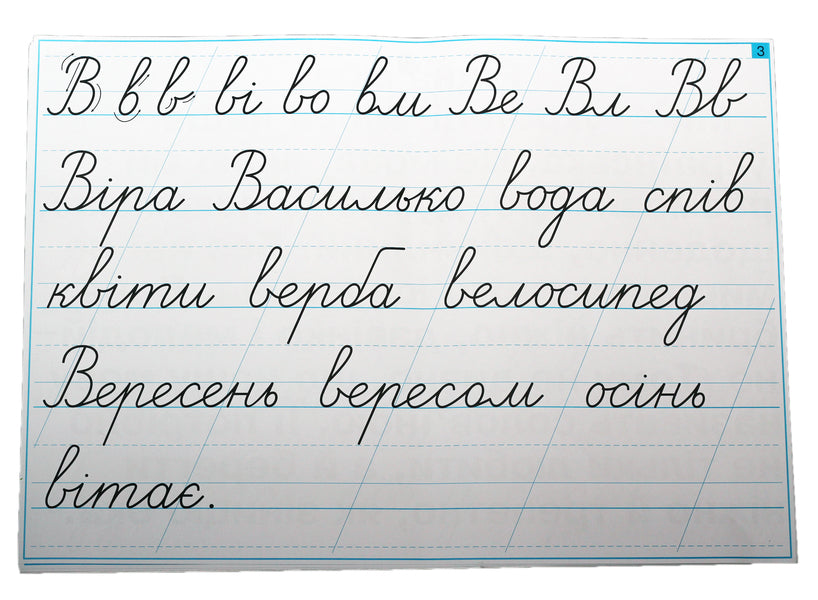 3
В в в ві во вм Ве Вл Вв
Віра Василько вода спів
квіти верба велосипед
Вересень вересом осінь
вітає.